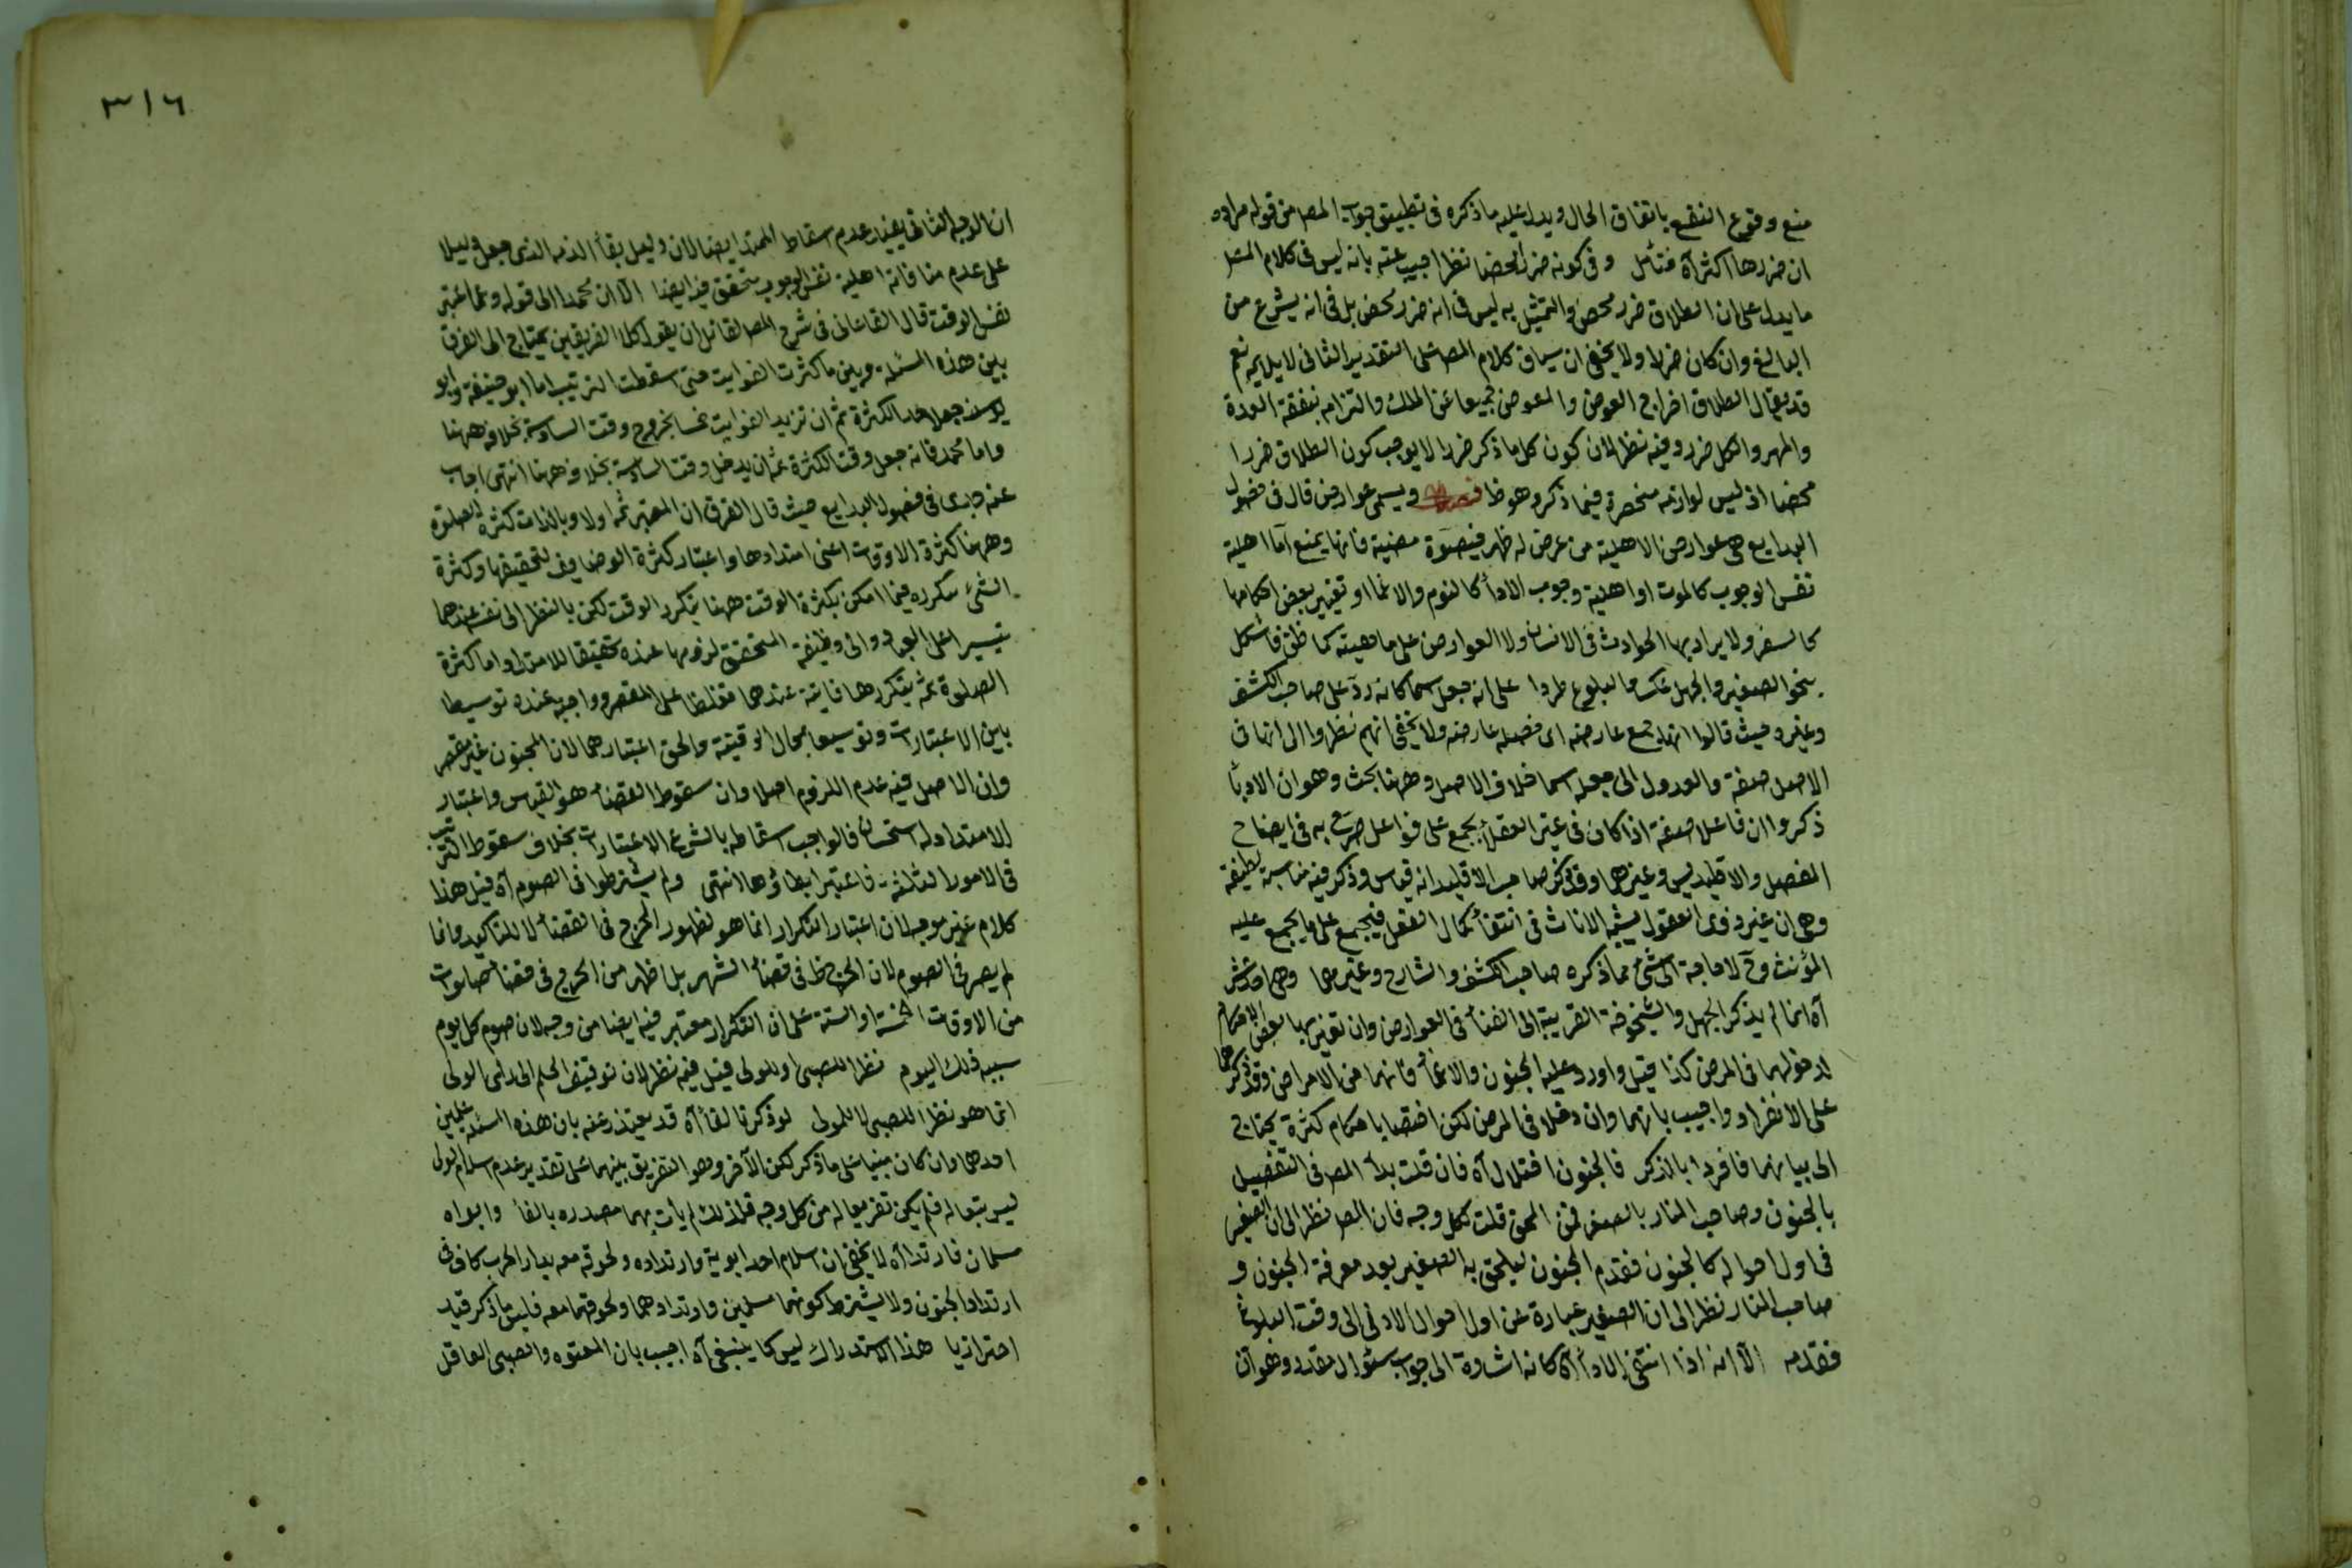 منع وقوع النفع باتفاق الحال ويدل عليه ما ذكره فى تطبيق جواب المص من قوله مراده
ان ضررها اكثر آه فتأمل وفى كونه ضررا محضا نظر اجيب عنه بانه ليس فى كلام المص
ما يدل على ان الطلاق ضرر محض والتمثيل به ليس فى انه ضرر محض بل فى انه يشرع من
البالغ وان كان ضررا ولا يخفى ان سياق كلام المص على التقدير الثانى لا يلايمه نعم
قد يقال الطلاق اخراج العوض والمعوض جميعا عن الملك والتزام بنفقة العدة
والمهر والكل ضرر وفيه نظر لان كون كل ما ذكر ضررا لا يوجب كون الطلاق ضررا
محضا اذ ليس لوازمه منحصرة فيما ذكر وهو ظ ويسمى عوارض قال فى فصول
البدايع هى عوارض الاهلية من عرض له ظهر فانها يمنع اما اهلية
نفس الوجوب كالموت او اهلية وجوب الادأ كالنوم والاغما او تغير بعض احكامها
كالسفر ولا يراد بها الحوادث فى الانسان ولا العوارض على ماهيته كما ظن فاشكل
بنحو الصغير والجهل عكسا والبلوغ طردا على انه جعل اسما كانه رد على صاحب الكشف
وغيره حيث قالوا انها جمع عارضه اى خصلة عارضه ولا يخفى انهم نظروا الى انها فى
الاصل صفة والعدول الى جعله اسما خلاف الاصل وههنا بحث وهو ان الادبأ
ذكروا ان فاعلا صفة اذا كان فى غير العقلأ يجمع على فواعل صرح به فى ايضاح
المفصل والاقليد وغيرهما وقد ذكر صاحب الاقليد انه قياس وذكر فيه مناسبة لطيفة
وهى ان غير ذوى العقول يشبه الاناث فى انتفأ كمال العقل فيجمع على ما يجمع عليه
المؤنث وح لا حاجة الى شئ مما ذكره صاحب الكشف والشارح وغيرهما
آه انما لم يذكر الجهل والشيخوخة القريبة الى الفنأ فى العوارض وان تغير بها بعض الاحكام
لدخولهما فى المرض كذا قيل واورد عليه الجنون والاغمأ فانهما من الامراض وقد ذكرهما
على الانفراد واجيب بانهما وان دخلا فى المرض لكن اختصا باحكام كثيرة يحتاج
الى بيانهما فافردا بالذكر فالجنون اختلال آه فان قلت بدأ المص فى التفصيل
بالجنون وصاحب المنار بالصغر فمن المحق قلت لكل وجه فان المص نظر الى ان الصغير
فى اول احواله كالجنون فقدم الجنون ليلحق به الصغير بعد معرفة الجنون و
صاحب المنار نظر الى ان الصغير عبارة عن اول احوال الادمى الى وقت البلوغ
فقدمه الا انه اذا انتفى الادأ آه كانه اشارة الى جواب سئوال مقدر وهو ان
٣١٦
ان الوجه الثانى يفيد عدم اسقاط الممتد ايضا لان دليل بقأ الذمه الذى جعل دليلا
على عدم منافاته اهلية نفس الوجوب يتحقق فيه ايضا الا ان محمدا الى قوله اعتبر
نفس الوقت قال القاءانى فى شرح المص لقائل ان يقول كلا الفريقين يحتاج الى الفرق
بين هذه المسئلة وبين ما كثرت الفوايت حتى اسقطت الترتيب اما ابو حنيفة وابو
يوسف جعلا حد الكثرة ثم ان تزيد الفوايت خمسا بخروج وقت السادسة بخلافه ههنا
واما محمد فانه جعل وقت الكثرة ثم ان يدخل وقت السادسة بخلافه ههنا انتهى اجاب
عنه جدى فى فصول البدايع حيث قال الفرق ان المعتبر ثمه اولا وبالذات كثرة الصلوة
وههنا كثرة الاوقات اعنى امتدادها واعتبار كثرة الوضايف لتحقيقها وكثرة
الشئ بتكرره فيما امكن بكثرة الوقت ههنا بتكرر الوقت لكن بالنظر الى نفسه عندهما
تيسيرا على العباد والى وظيفة المتحقق لزومها عنده تحقيقا للامتداد واما كثرة
الصلوة ثمه بتكررها فايتة عندهما تغليظا على المقصر وواجبة عنده توسيطا
بين الاعتبارات وتوسيعا بمحال الوقتية والحق اعتبارهما لان المجنون غير مقصر
وان الاصل فيه عدم اللزوم اصلا وان سقوط القضأ هو القياس واعتبار
الامتداد له استحسانا فالواجب اسقاطه باشرع الاعتبارات بخلاف سقوط الترتيب
فى الامور الثلثة فاعتبر ابطاؤها انتهى ولم يشترطوا فى الصوم آه قيل هذا
كلام غير موجه لان اعتبار التكرار انما هو لظهور الحرج فى القضأ لا للتأكيد وانما
لم يصر فى الصوم لان الحرج ظ فى قضأ الشهر بل اظهر من الحرج فى قضأ صلوات
من الاوقات الخمسة او الستة على ان التكرار معتبر فيه ايضا من وجه لان صوم كل يوم
سببه ذلك اليوم نظرا للصبى او للولى قيل فيه نظر لان توقيف الحلم الى ولى الولى
انما هو نظرا للصبى لا للمولى لو ذكرنا لقأ آه قد يعتذر عنه بان هذه المسئلة علمين
احدهما وان كان مبنيا على ما ذكر لكن الآخر وهو التفريق بينهما على تقدير عدم اسلام الولى
ليس بتعاله فلم يكن تفريعا له من كل وجه فلذلك لم يأت بهما مصدره بالفأ وابواه
مسلمان فارتدا آه لا يخفى ان اسلام احد ابويه وارتداده ولحوقه معه بدار الحرب كاف فى
ارتداد الجنون ولا يشترط كونهما مسلمين وارتدادهما ولحوقهما معه فليس ما ذكر قيدا
احترازيا هذا الاستدراك ليس كما ينبغى آه اجيب بان المعتوه والصبى العاقل